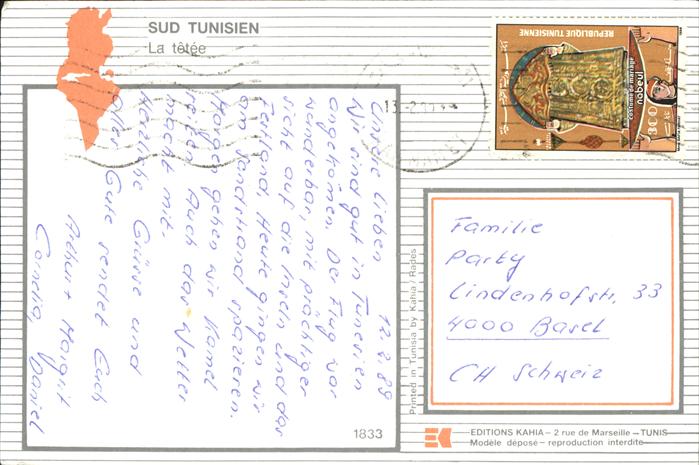 SUD TUNISIEN
La têtée
12.2.89
Ihr lieben
Wir sind gut in Tunesien
angekommen. Der Flug war
wunderbar, mit prächtiger
Sicht auf die Inseln und das
Festland. Heute gingen wir
am Sandstrand spazieren.
Morgen gehen wir Kamel
reiten. Auch das Wetter
macht mit.
Herzliche Grüsse und
alles Gute sendet Euch
Arthur + Margrit
Cornelia, Daniel
1833
Printed in Tunisia by Kahia / Rades
REPUBLIQUE TUNISIENNE
costume de mariage
nabeul
300
Familie
Party
Lindenhofstr. 33
4000 Basel
CH Schweiz
EDITIONS KAHIA – 2 rue de Marseille – TUNIS
Modèle déposé – reproduction interdite